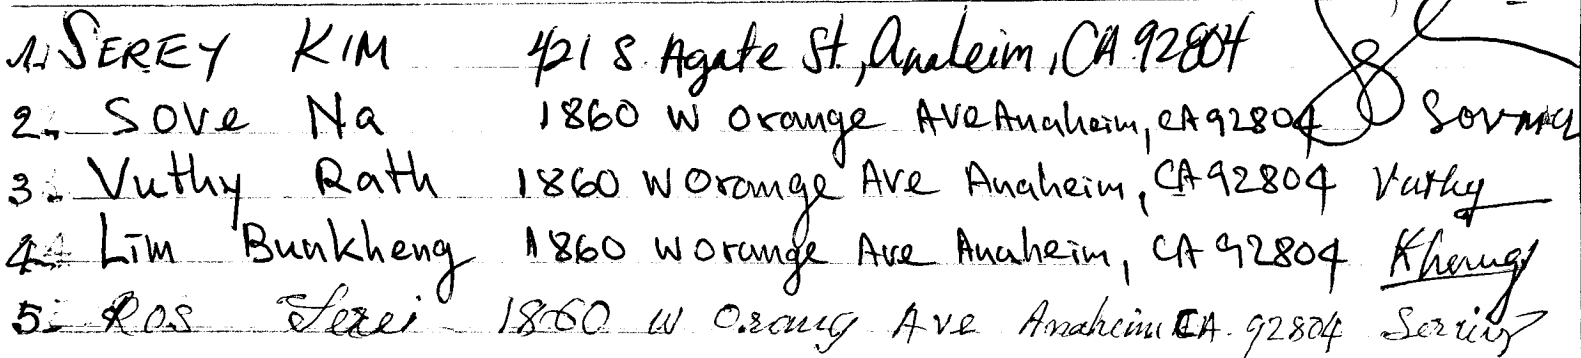 1. SEREY KIM 421 S. Agate St, Anaheim, CA 92804
2. Sove Na 1860 W Orange Ave Anaheim, CA 92804 Sovna
3. Vuthy Rath 1860 W Orange Ave Anaheim, CA 92804 Vuthy
4. Lim Bunkheng 1860 W Orange Ave Anaheim, CA 92804 Kheng
5. Ros Serei 1860 W Orang Ave Anaheim CA. 92804